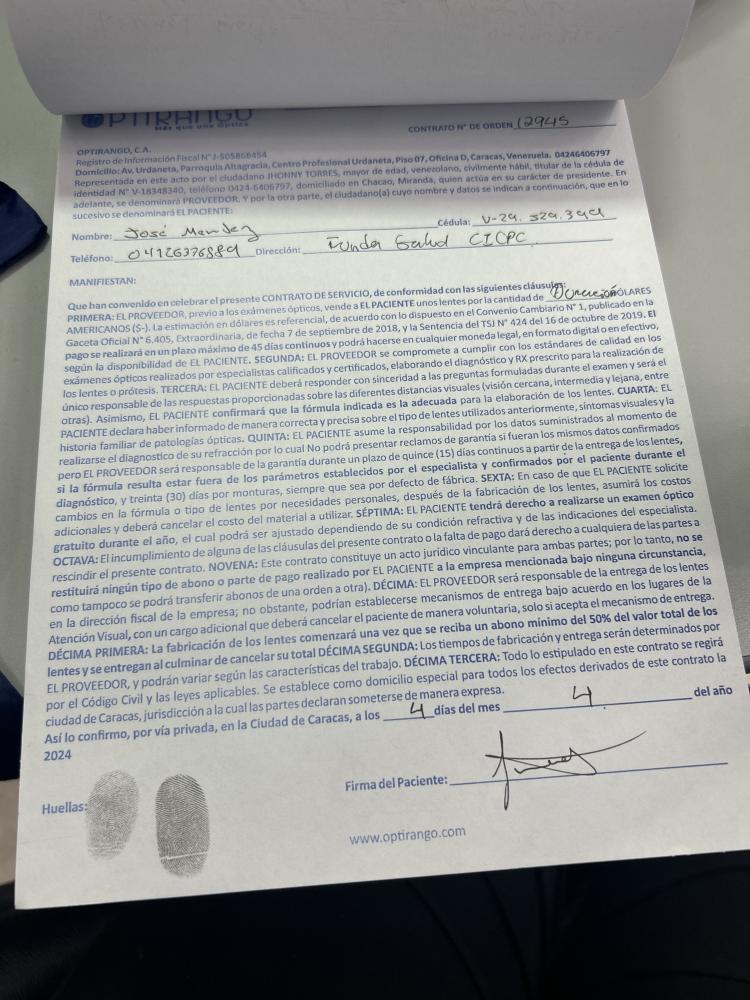 OPTIRANGO
Más que una Óptica
CONTRATO N° DE ORDEN 12945
OPTIRANGO, C.A.
Registro de Información Fiscal N° J-505868454
Domicilio: Av. Urdaneta, Parroquia Altagracia, Centro Profesional Urdaneta, Piso 07, Oficina D, Caracas, Venezuela. 04246406797
Representada en este acto por el ciudadano JHONNY TORRES, mayor de edad, venezolano, civilmente hábil, titular de la cédula de
identidad N° V-18348340, teléfono 0424-6406797, domiciliado en Chacao, Miranda, quien actúa en su carácter de presidente. En
adelante, se denominará PROVEEDOR. Y por la otra parte, el ciudadano(a) cuyo nombre y datos se indican a continuación, que en lo
sucesivo se denominará EL PACIENTE:
Nombre: José Mendez Cédula: V-29.529.399
Teléfono: 04126376889 Dirección: Funda Salud CICPC
MANIFIESTAN:
Que han convenido en celebrar el presente CONTRATO DE SERVICIO, de conformidad con las siguientes cláusulas:
PRIMERA: EL PROVEEDOR, previo a los exámenes ópticos, vende a EL PACIENTE unos lentes por la cantidad de DÓLARES
AMERICANOS ($-). La estimación en dólares es referencial, de acuerdo con lo dispuesto en el Convenio Cambiario N° 1, publicado en la
Gaceta Oficial N° 6.405, Extraordinaria, de fecha 7 de septiembre de 2018, y la Sentencia del TSJ N° 424 del 16 de octubre de 2019. El
pago se realizará en un plazo máximo de 45 días continuos y podrá hacerse en cualquier moneda legal, en formato digital o en efectivo,
según la disponibilidad de EL PACIENTE. SEGUNDA: EL PROVEEDOR se compromete a cumplir con los estándares de calidad en los
exámenes ópticos realizados por especialistas calificados y certificados, elaborando el diagnóstico y RX prescrito para la realización de
los lentes o prótesis. TERCERA: EL PACIENTE deberá responder con sinceridad a las preguntas formuladas durante el examen y será el
único responsable de las respuestas proporcionadas sobre las diferentes distancias visuales (visión cercana, intermedia y lejana, entre
otras). Asimismo, EL PACIENTE confirmará que la fórmula indicada es la adecuada para la elaboración de los lentes. CUARTA: EL
PACIENTE declara haber informado de manera correcta y precisa sobre el tipo de lentes utilizados anteriormente, síntomas visuales y la
historia familiar de patologías ópticas. QUINTA: EL PACIENTE asume la responsabilidad por los datos suministrados al momento de
realizarse el diagnostico de su refracción por lo cual No podrá presentar reclamos de garantía si fueran los mismos datos confirmados
pero EL PROVEEDOR será responsable de la garantía durante un plazo de quince (15) días continuos a partir de la entrega de los lentes,
si la fórmula resulta estar fuera de los parámetros establecidos por el especialista y confirmados por el paciente durante el
diagnóstico, y treinta (30) días por monturas, siempre que sea por defecto de fábrica. SEXTA: En caso de que EL PACIENTE solicite
cambios en la fórmula o tipo de lentes por necesidades personales, después de la fabricación de los lentes, asumirá los costos
adicionales y deberá cancelar el costo del material a utilizar. SÉPTIMA: EL PACIENTE tendrá derecho a realizarse un examen óptico
gratuito durante el año, el cual podrá ser ajustado dependiendo de su condición refractiva y de las indicaciones del especialista.
OCTAVA: El incumplimiento de alguna de las cláusulas del presente contrato o la falta de pago dará derecho a cualquiera de las partes a
rescindir el presente contrato. NOVENA: Este contrato constituye un acto jurídico vinculante para ambas partes; por lo tanto, no se
restituirá ningún tipo de abono o parte de pago realizado por EL PACIENTE a la empresa mencionada bajo ninguna circunstancia,
como tampoco se podrá transferir abonos de una orden a otra). DÉCIMA: EL PROVEEDOR será responsable de la entrega de los lentes
en la dirección fiscal de la empresa; no obstante, podrían establecerse mecanismos de entrega bajo acuerdo en los lugares de la
Atención Visual, con un cargo adicional que deberá cancelar el paciente de manera voluntaria, solo si acepta el mecanismo de entrega.
DÉCIMA PRIMERA: La fabricación de los lentes comenzará una vez que se reciba un abono mínimo del 50% del valor total de los
lentes y se entregan al culminar de cancelar su total DÉCIMA SEGUNDA: Los tiempos de fabricación y entrega serán determinados por
EL PROVEEDOR, y podrán variar según las características del trabajo. DÉCIMA TERCERA: Todo lo estipulado en este contrato se regirá
por el Código Civil y las leyes aplicables. Se establece como domicilio especial para todos los efectos derivados de este contrato la
ciudad de Caracas, jurisdicción a la cual las partes declaran someterse de manera expresa.
Así lo confirmo, por vía privada, en la Ciudad de Caracas, a los 4 días del mes 4 del año
2024
Huellas:
Firma del Paciente:
www.optirango.com